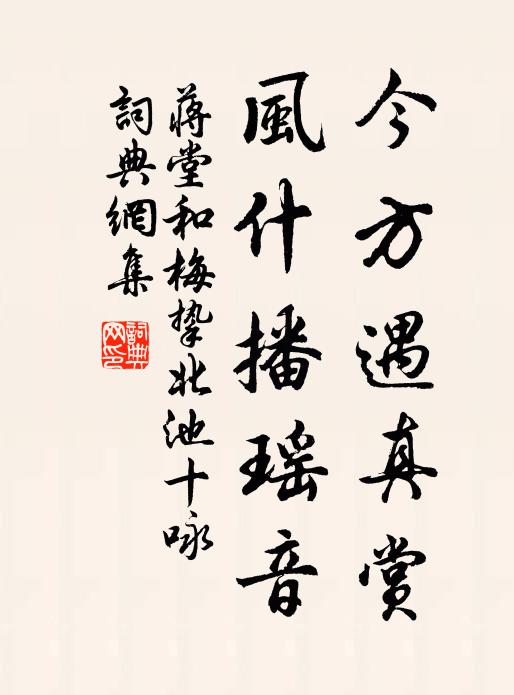 今方遇真賞
風什播瑶音
蔣堂和梅挚北池十咏
詞典網集
詞典
网印